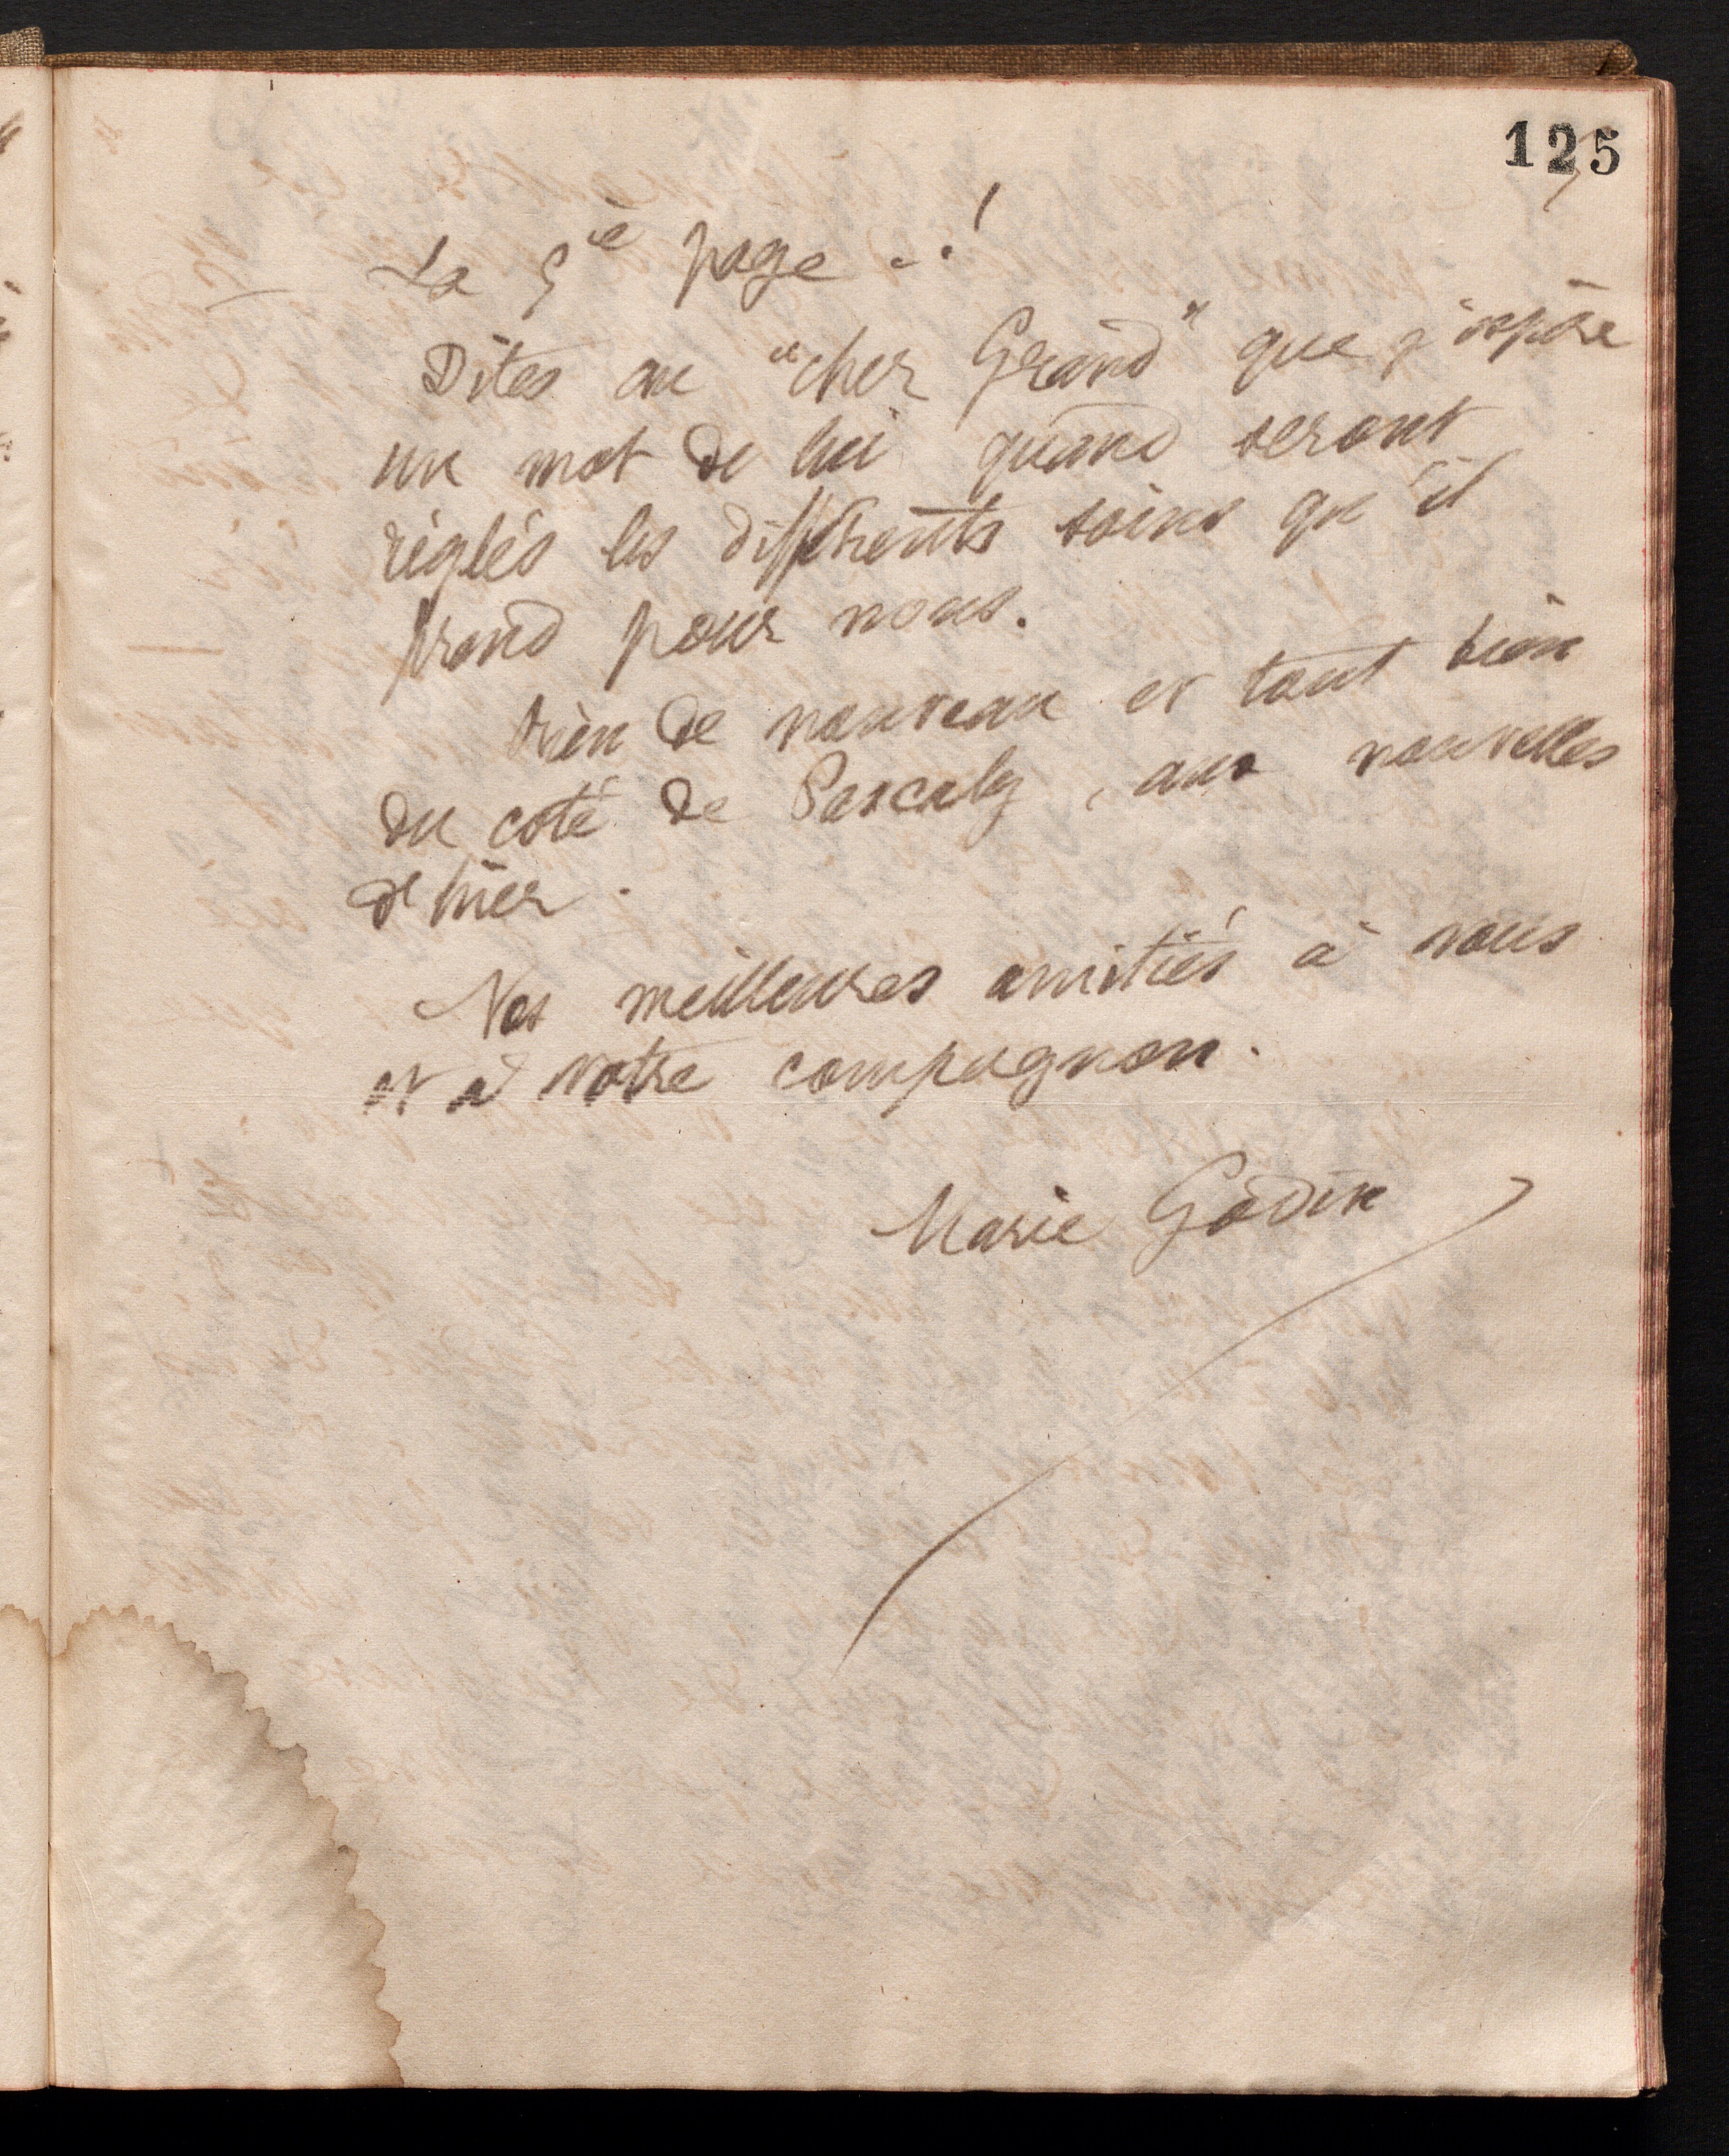 125
La 5ie page ..!
Dites au "cher Grand" que j'espère
un mot de lui quand seront
réglés les différents soins qu'il
prend pour nous.
Rien de nouveau et tout bien
du coté de Pascaly, aux nouvelles
d'hier.
Nos meilleures amitiés à vous
et à votre compagnon.
Marie Godin